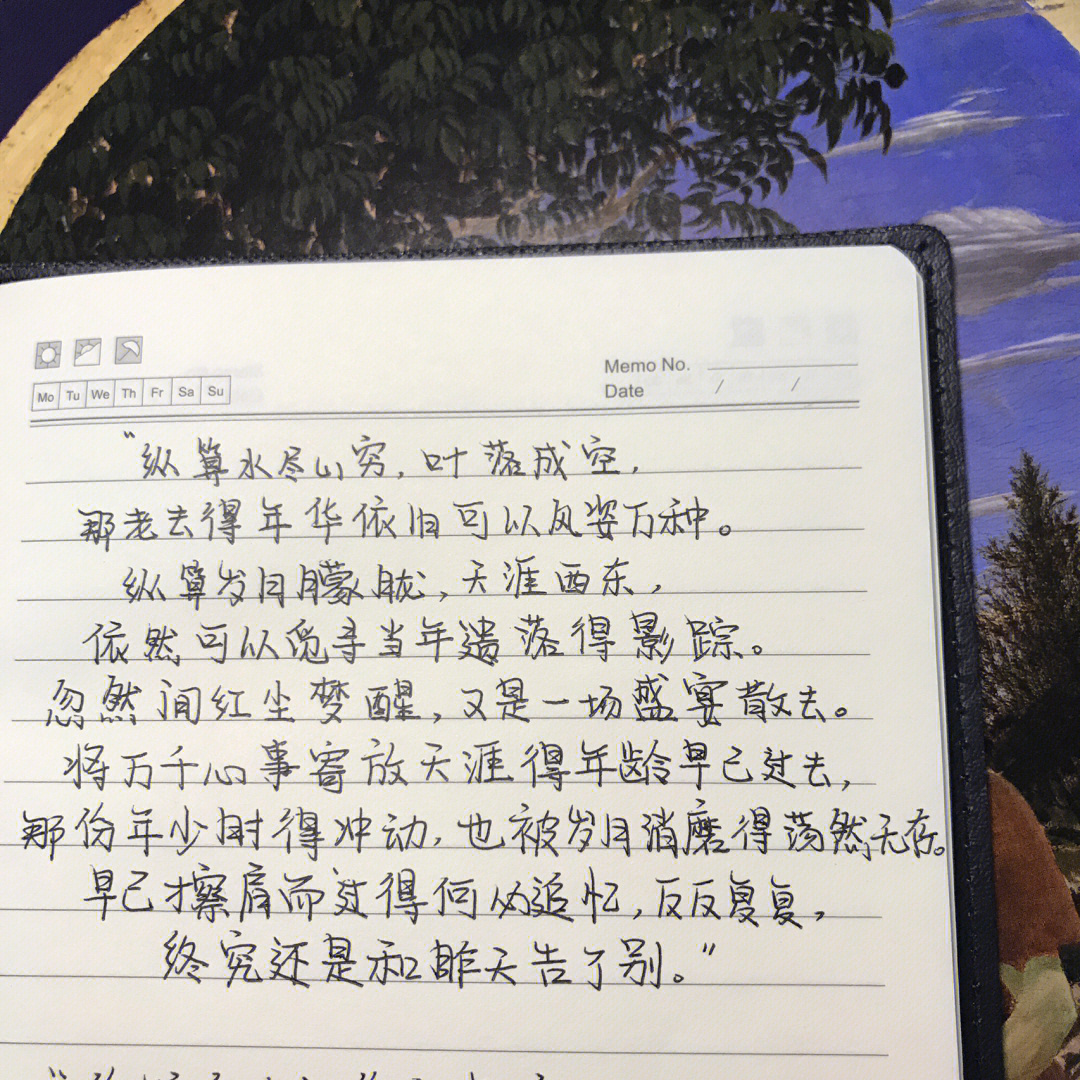 Memo No.
Mo Tu We Th Fr Sa Su
Date / /
“纵算水尽山穷,叶落成空,
那老去得年华依旧可以风姿万种。
纵算岁月朦胧,天涯西东,
依然可以觅寻当年遗落得影踪。
忽然间红尘梦醒,又是一场盛宴散去。
将万千心事寄放天涯得年龄早已过去,
那份年少时得冲动,也被岁月消磨得荡然无存。
早已擦肩而过得何必追忆,反反复复,
终究还是和昨天告了别。”